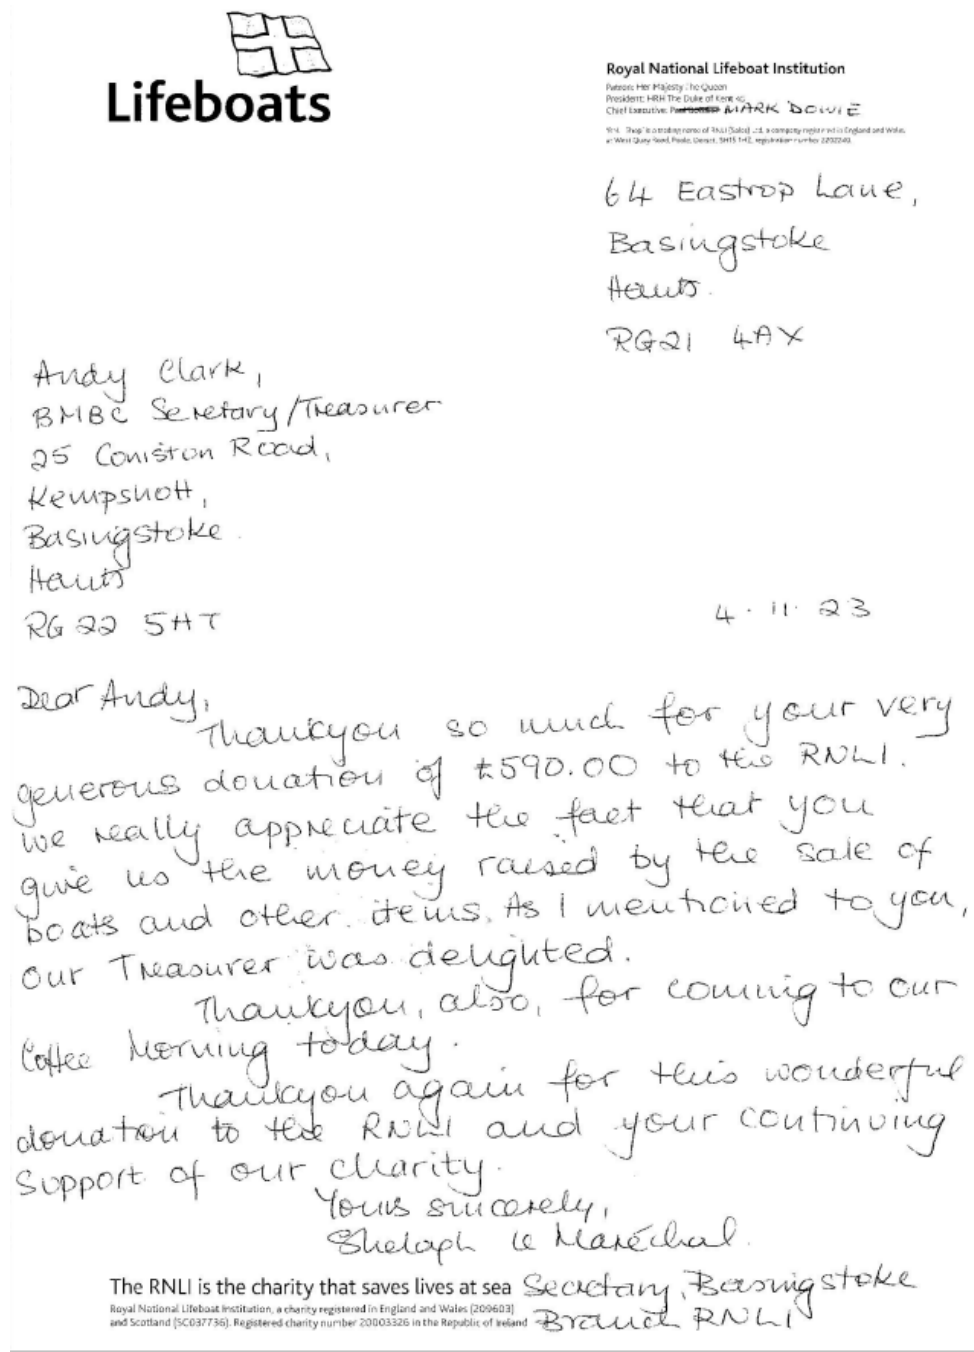 Lifeboats
Royal National Lifeboat Institution
Patron: Her Majesty The Queen
President: HRH The Duke of Kent KG
Chief Executive: MARK DOWIE
RNLI Shop is a trading name of RNLI (Sales) Ltd, a company registered in England and Wales,
at West Quay Road, Poole, Dorset, BH15 1HZ, registration number 2202240.
64 Eastrop Lane,
Basingstoke
Hants.
RG21 4AX
Andy Clark,
BMBC Secretary/Treasurer
25 Coniston Road,
Kempshott,
Basingstoke.
Hants
RG22 5HT
4.11.23
Dear Andy,
Thankyou so much for your very
generous donation of £590.00 to the RNLI.
We really appreciate the fact that you
give us the money raised by the sale of
boats and other items. As I mentioned to you,
our Treasurer was delighted.
Thankyou, also, for coming to our
Coffee Morning today.
Thankyou again for this wonderful
donation to the RNLI and your continuing
support of our charity.
Yours sincerely,
Shelagh le Maréchal.
The RNLI is the charity that saves lives at sea Secretary, Basingstoke
Royal National Lifeboat Institution, a charity registered in England and Wales (209603)
and Scotland (SC037736). Registered charity number 20003326 in the Republic of Ireland Branch RNLI